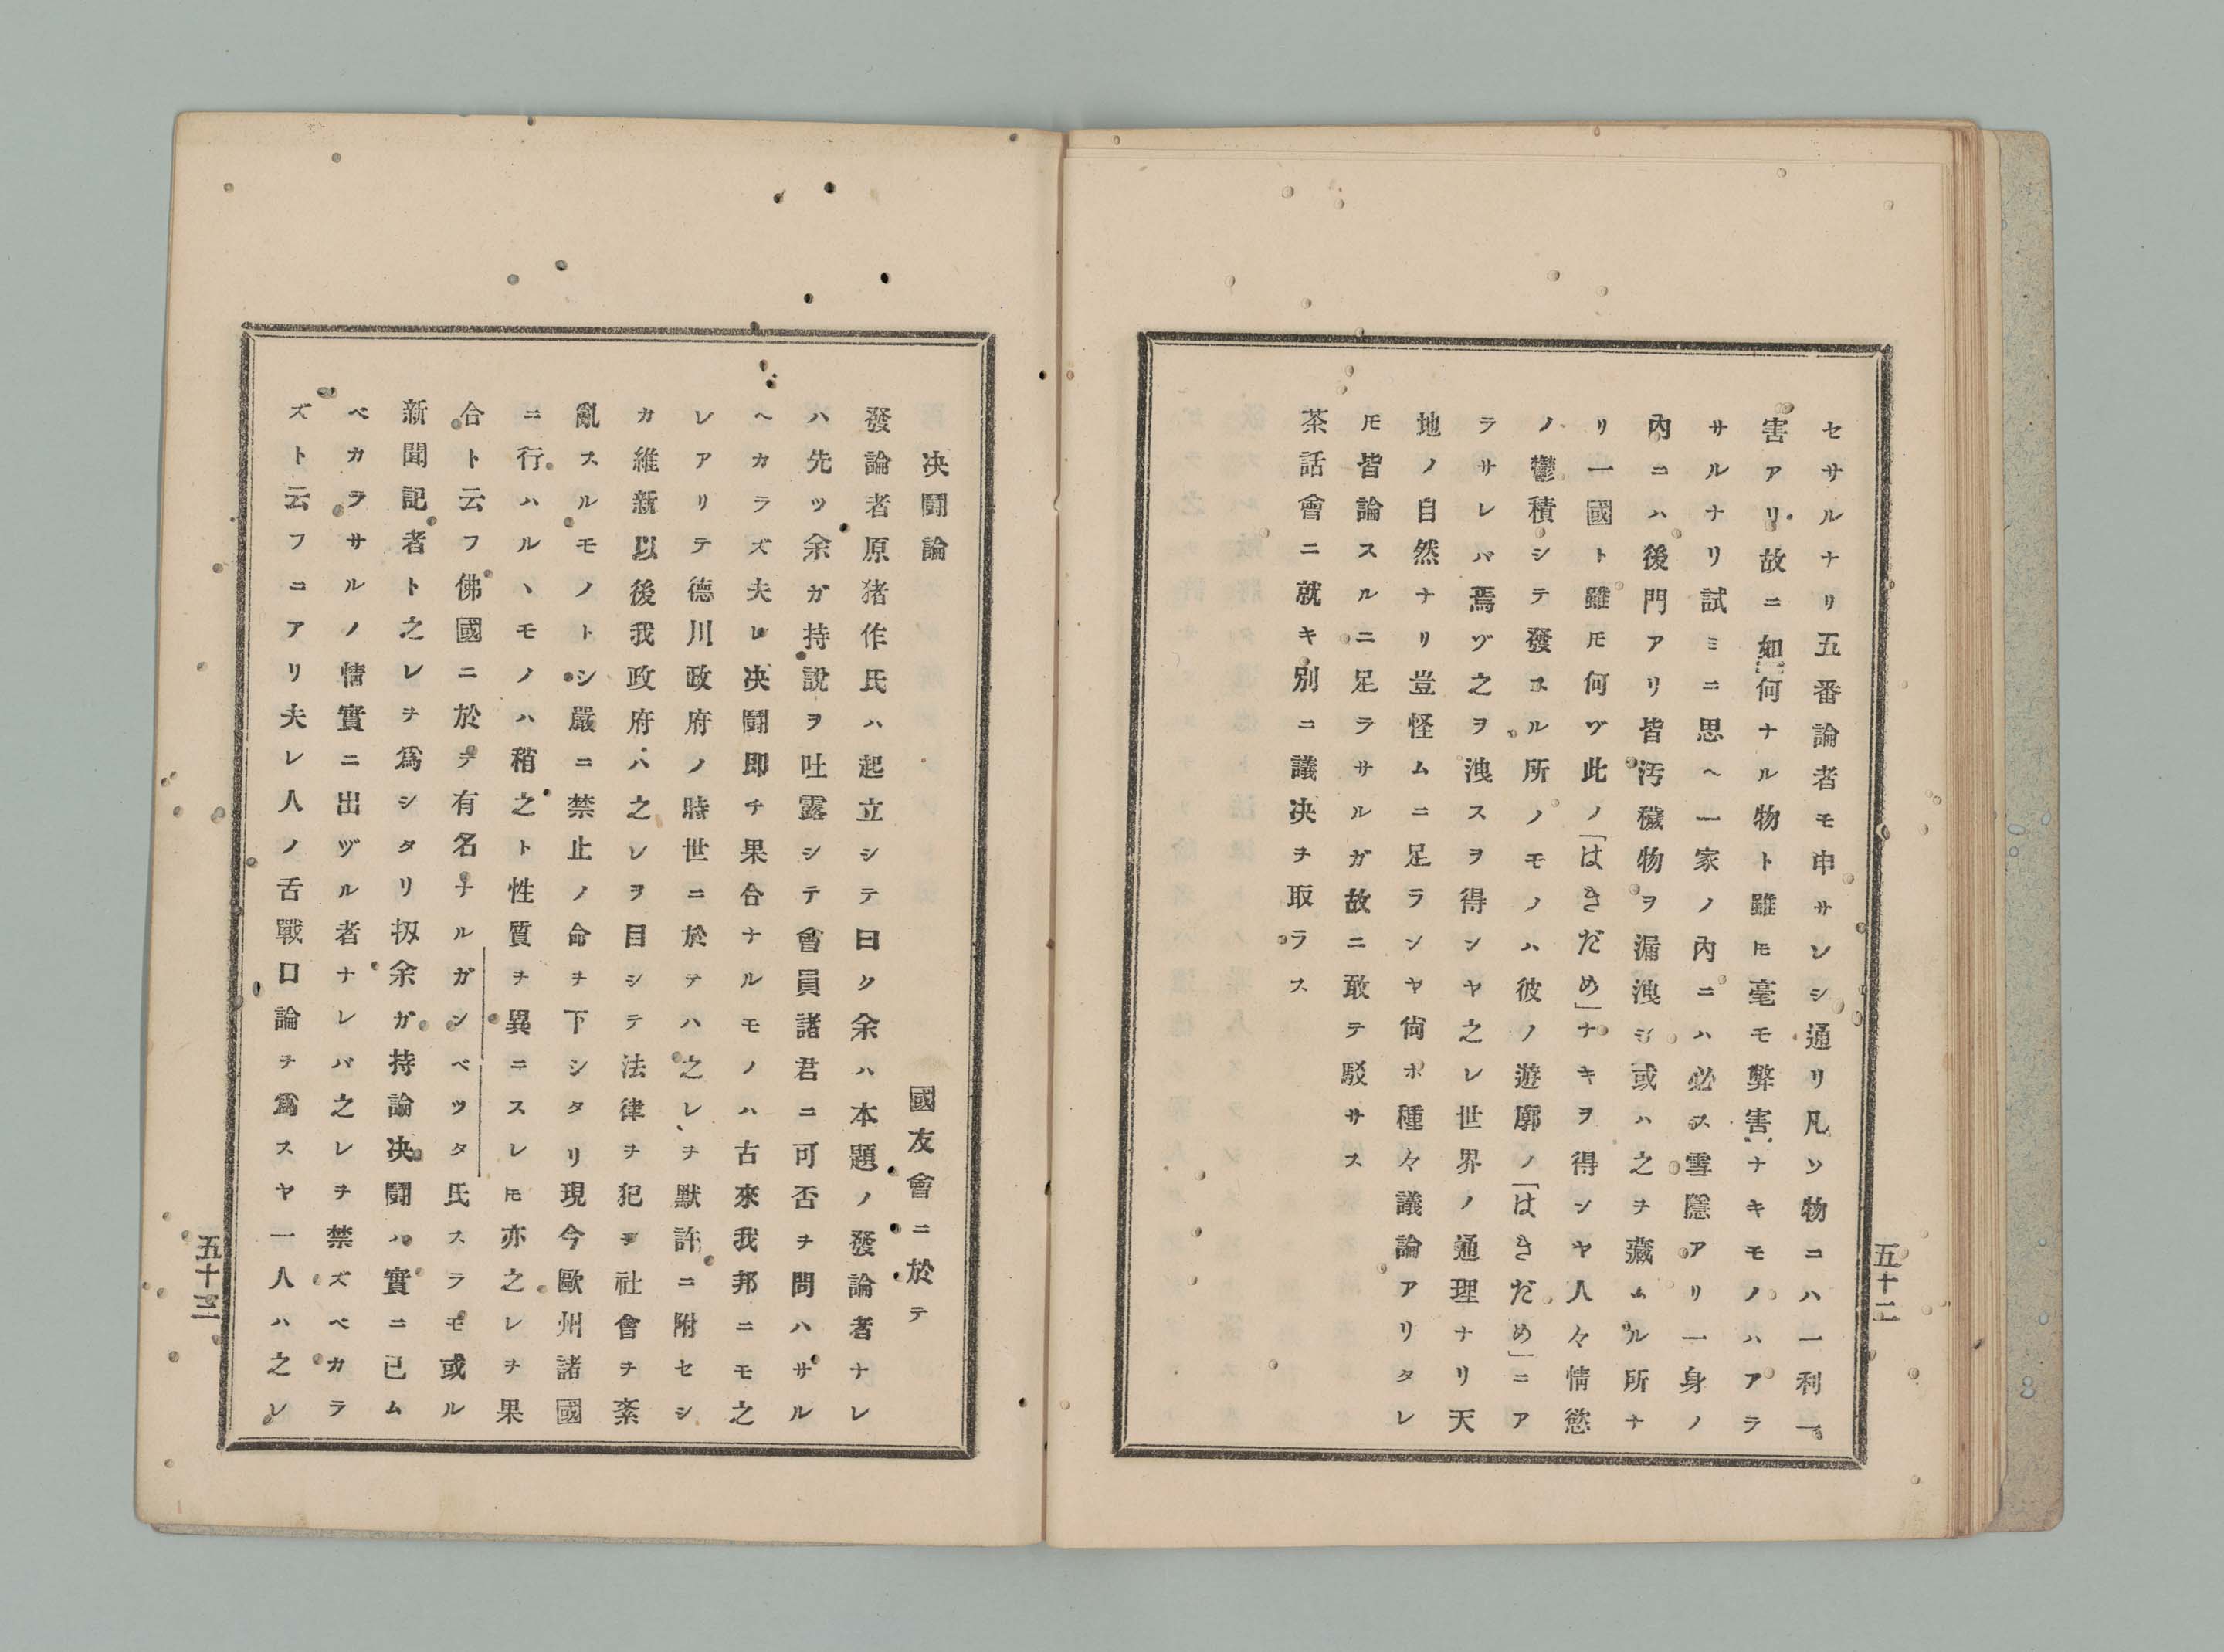 セサルナリ五番論者モ申サレシ通リ凡ソ物ニハ一利一
害アリ故ニ如何ナル物ト雖𪜈毫モ弊害ナキモノハアラ
サルナリ試ミニ思ヘ一家ノ內ニハ必ス雪隱アリ一身ノ
內ニハ後門アリ皆汚穢物ヲ漏洩シ或ハ之ヲ藏ムル所ナ
リ一國ト雖𪜈何ゾ此ノ「はきだめ」ナキヲ得ンヤ人々情慾
ノ鬱積シテ發スル所ノモノハ彼ノ遊廓ノ「はきだめ」ニア
ラサレバ焉ゾ之ヲ洩スヲ得ンヤ之レ世界ノ通理ナリ天
地ノ自然ナリ豈怪ムニ足ランヤ尙ホ種々議論アリタレ
𪜈皆論スルニ足ラサルガ故ニ敢テ駁サス
茶話會ニ就キ別ニ議决ヲ取ラス
五十二
决鬪論
國友會ニ於テ
發論者原猪作氏ハ起立シテ曰ク余ハ本題ノ發論者ナレ
ハ先ツ余ガ持說ヲ吐露シテ會員諸君ニ可否ヲ問ハサル
ヘカラズ夫レ决鬪即チ果合ナルモノハ古來我邦ニモ之
レアリテ德川政府ノ時世ニ於テハ之レヲ默許ニ附セシ
カ維新以後我政府ハ之レヲ目シテ法律ヲ犯ヲ社會ヲ紊
亂スルモノトシ嚴ニ禁止ノ命ヲ下シタリ現今歐州諸國
ニ行ハルヽモノハ稍之ト性質ヲ異ニスレ𪜈亦之レヲ果
合ト云フ佛國ニ於テ有名ナルガンベツタ氏スラモ或ル
新聞記者ト之レヲ爲シタリ扨余ガ持論决鬪ハ實ニ已ム
ベカラサルノ情實ニ出ヅル者ナレバ之レヲ禁ズベカラ
ズト云フニアリ夫レ人ノ舌戰口論ヲ爲スヤ一人ハ之レ
五十三